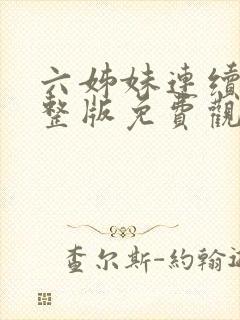 六姊妹連續
整版免費觀
查尔斯-約翰